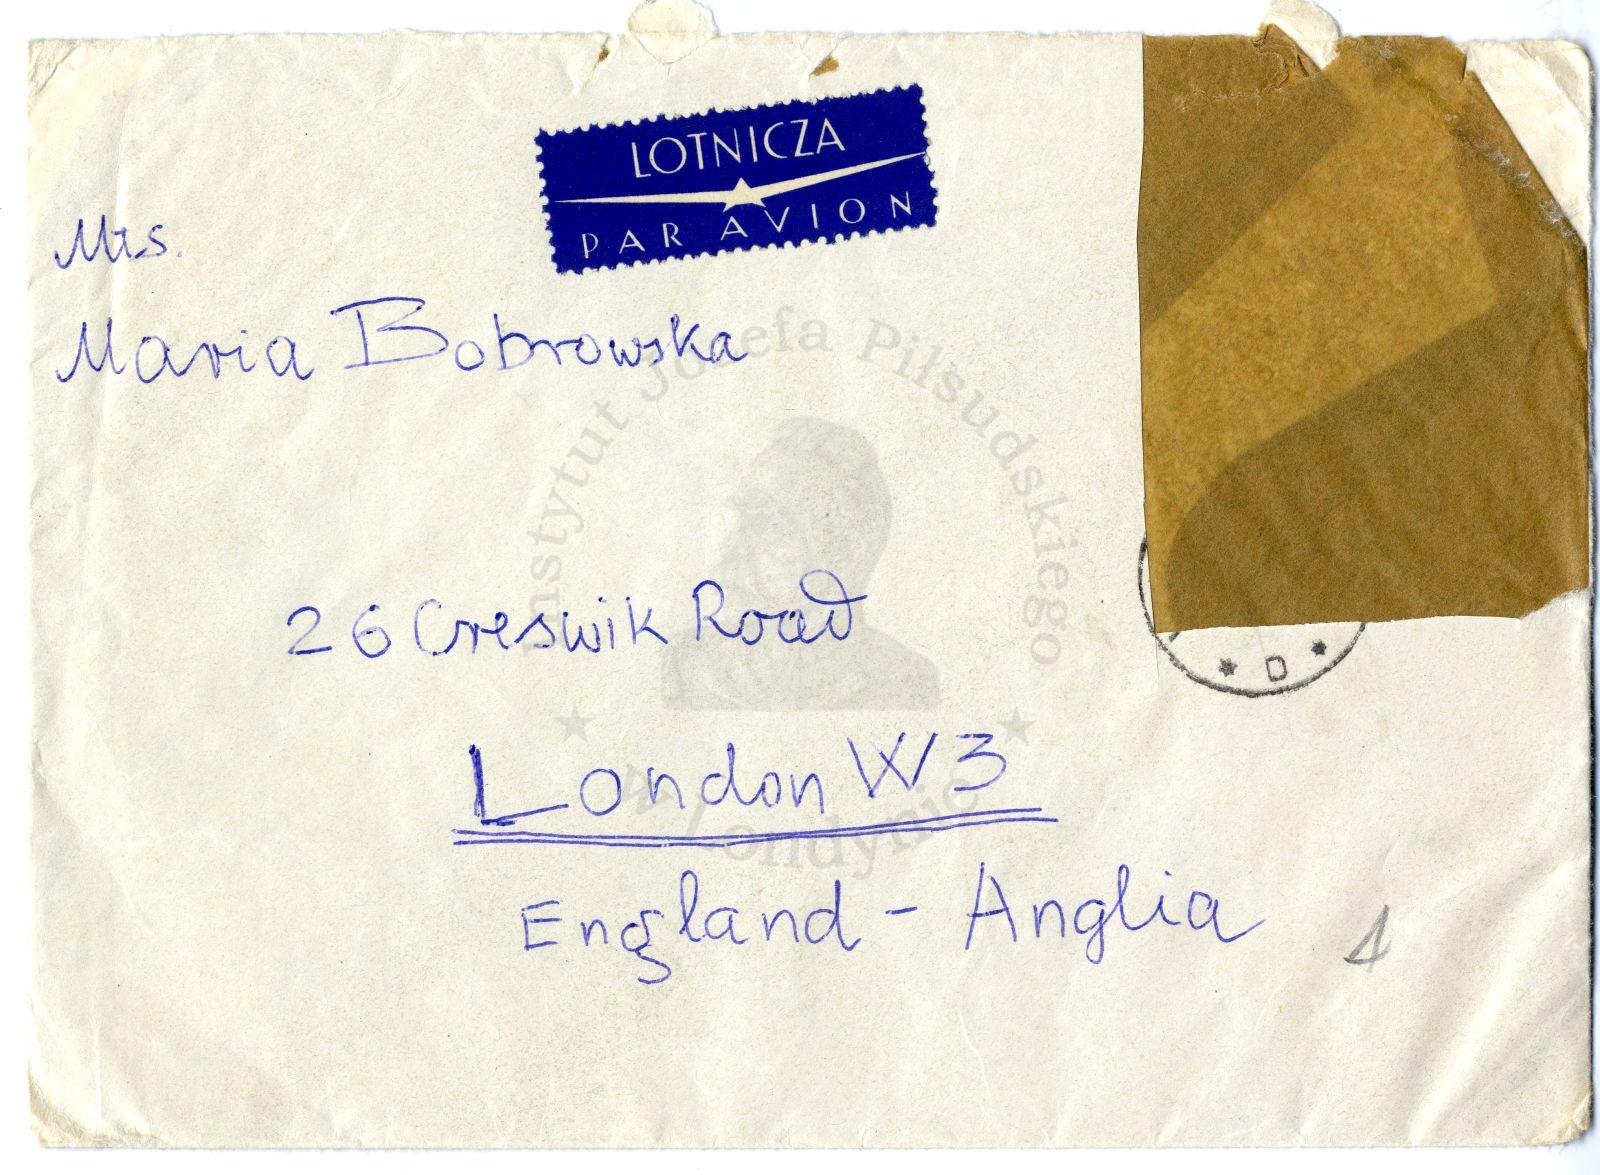 LOTNICZA
PAR AVION
Mrs.
Maria Bobrowska
26 Creswik Road
London W 3
England - Anglia
1
D
Instytut Józefa Piłsudskiego
w Londynie